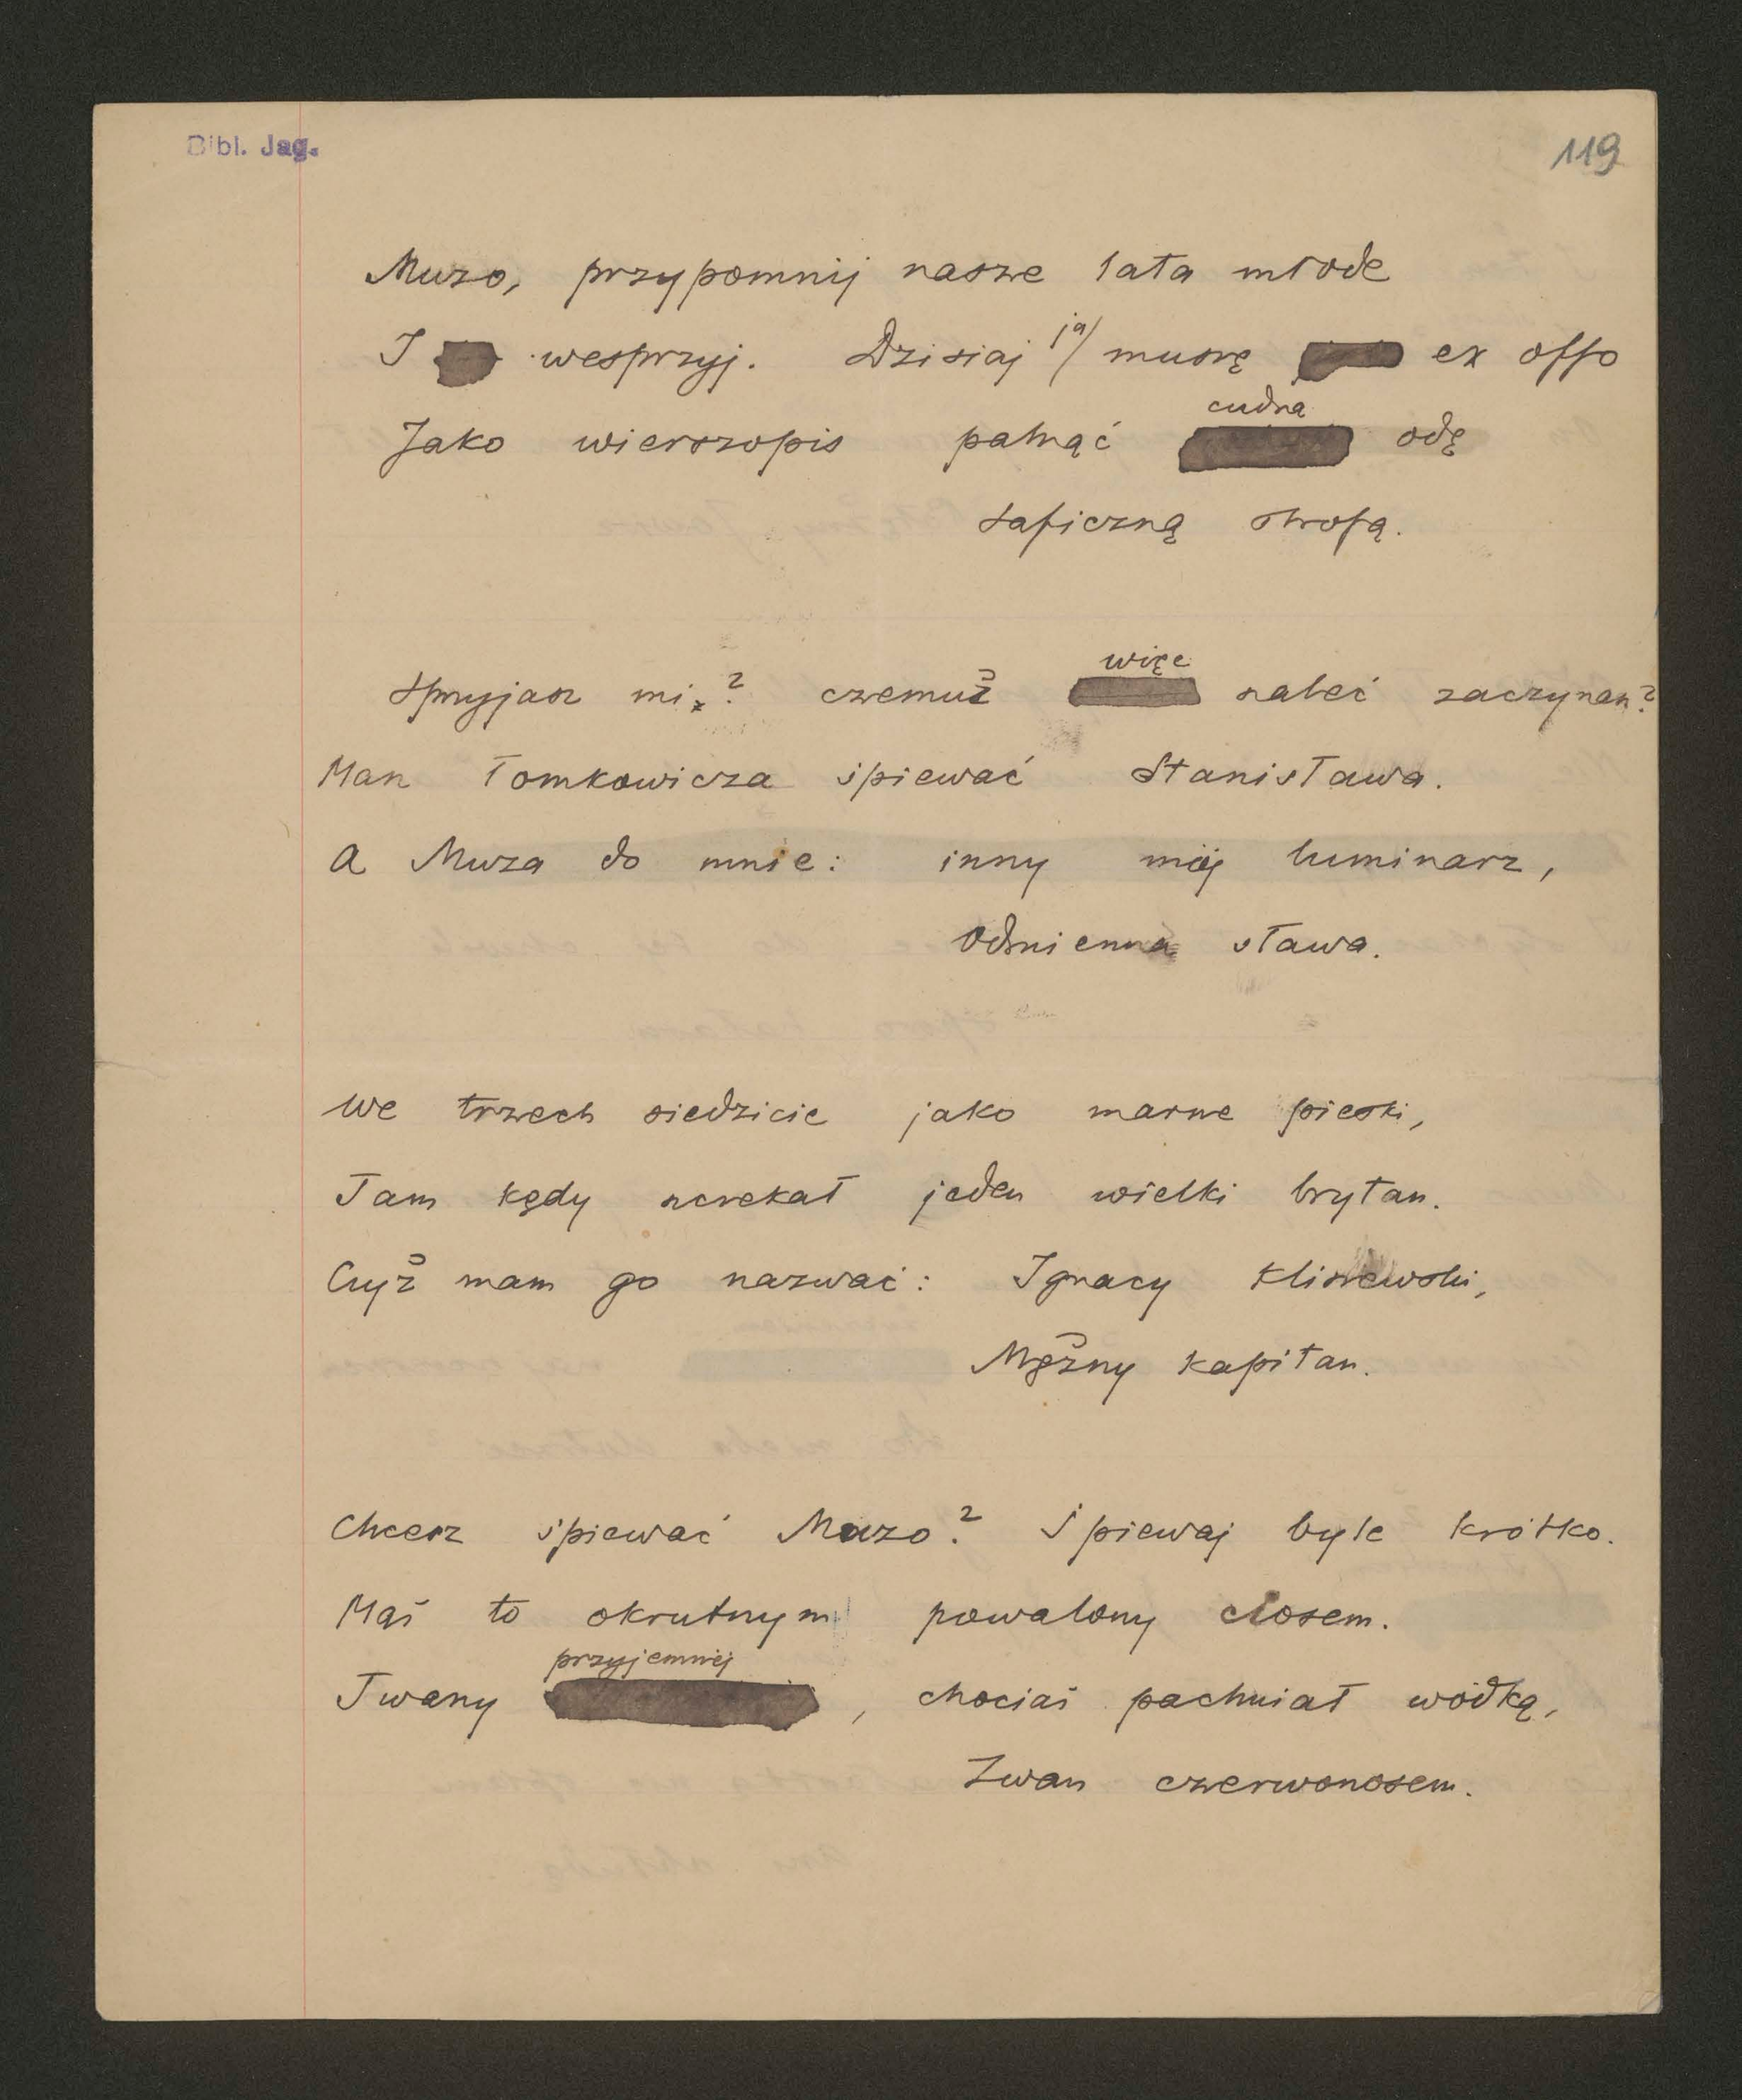 Bibl. Jag.
119
Muzo, przypomnij nasze lata młode
I wesprzyj. Dzisiaj ja muszę ex offo
Jako wierszopis palnąć cudną odę
Saficzną strofą.
Spryjasz mi? czemuż więc szaleć zaczynasz?
Mam Tomkowicza śpiewać Stanisława.
A Muza do mnie: inny mój luminarz,
Odmienna sława.
We trzech siedzicie jako marne pieski,
Tam kędy szczekał jeden wielki brytan.
Czyż mam go nazwać: Ignacy Kliszewski,
Mężny kapitan.
Chcesz śpiewać Muzo? Śpiewaj byle krótko.
Mąż to okrutnym powalony ciosem.
Twarzy przyjemnej, chociaż pachniał wódką,
Zwan czerwonosem.